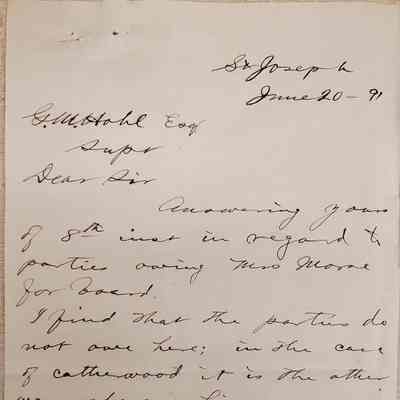 St Joseph
June 20 - 91
G.M. Hohl Esq
Supt
Dear Sir
Answering yours
of 8th inst in regard to
parties owing Mrs Morse
for board.
I find that the parties do
not owe here; in the case
of catherwood it is the other